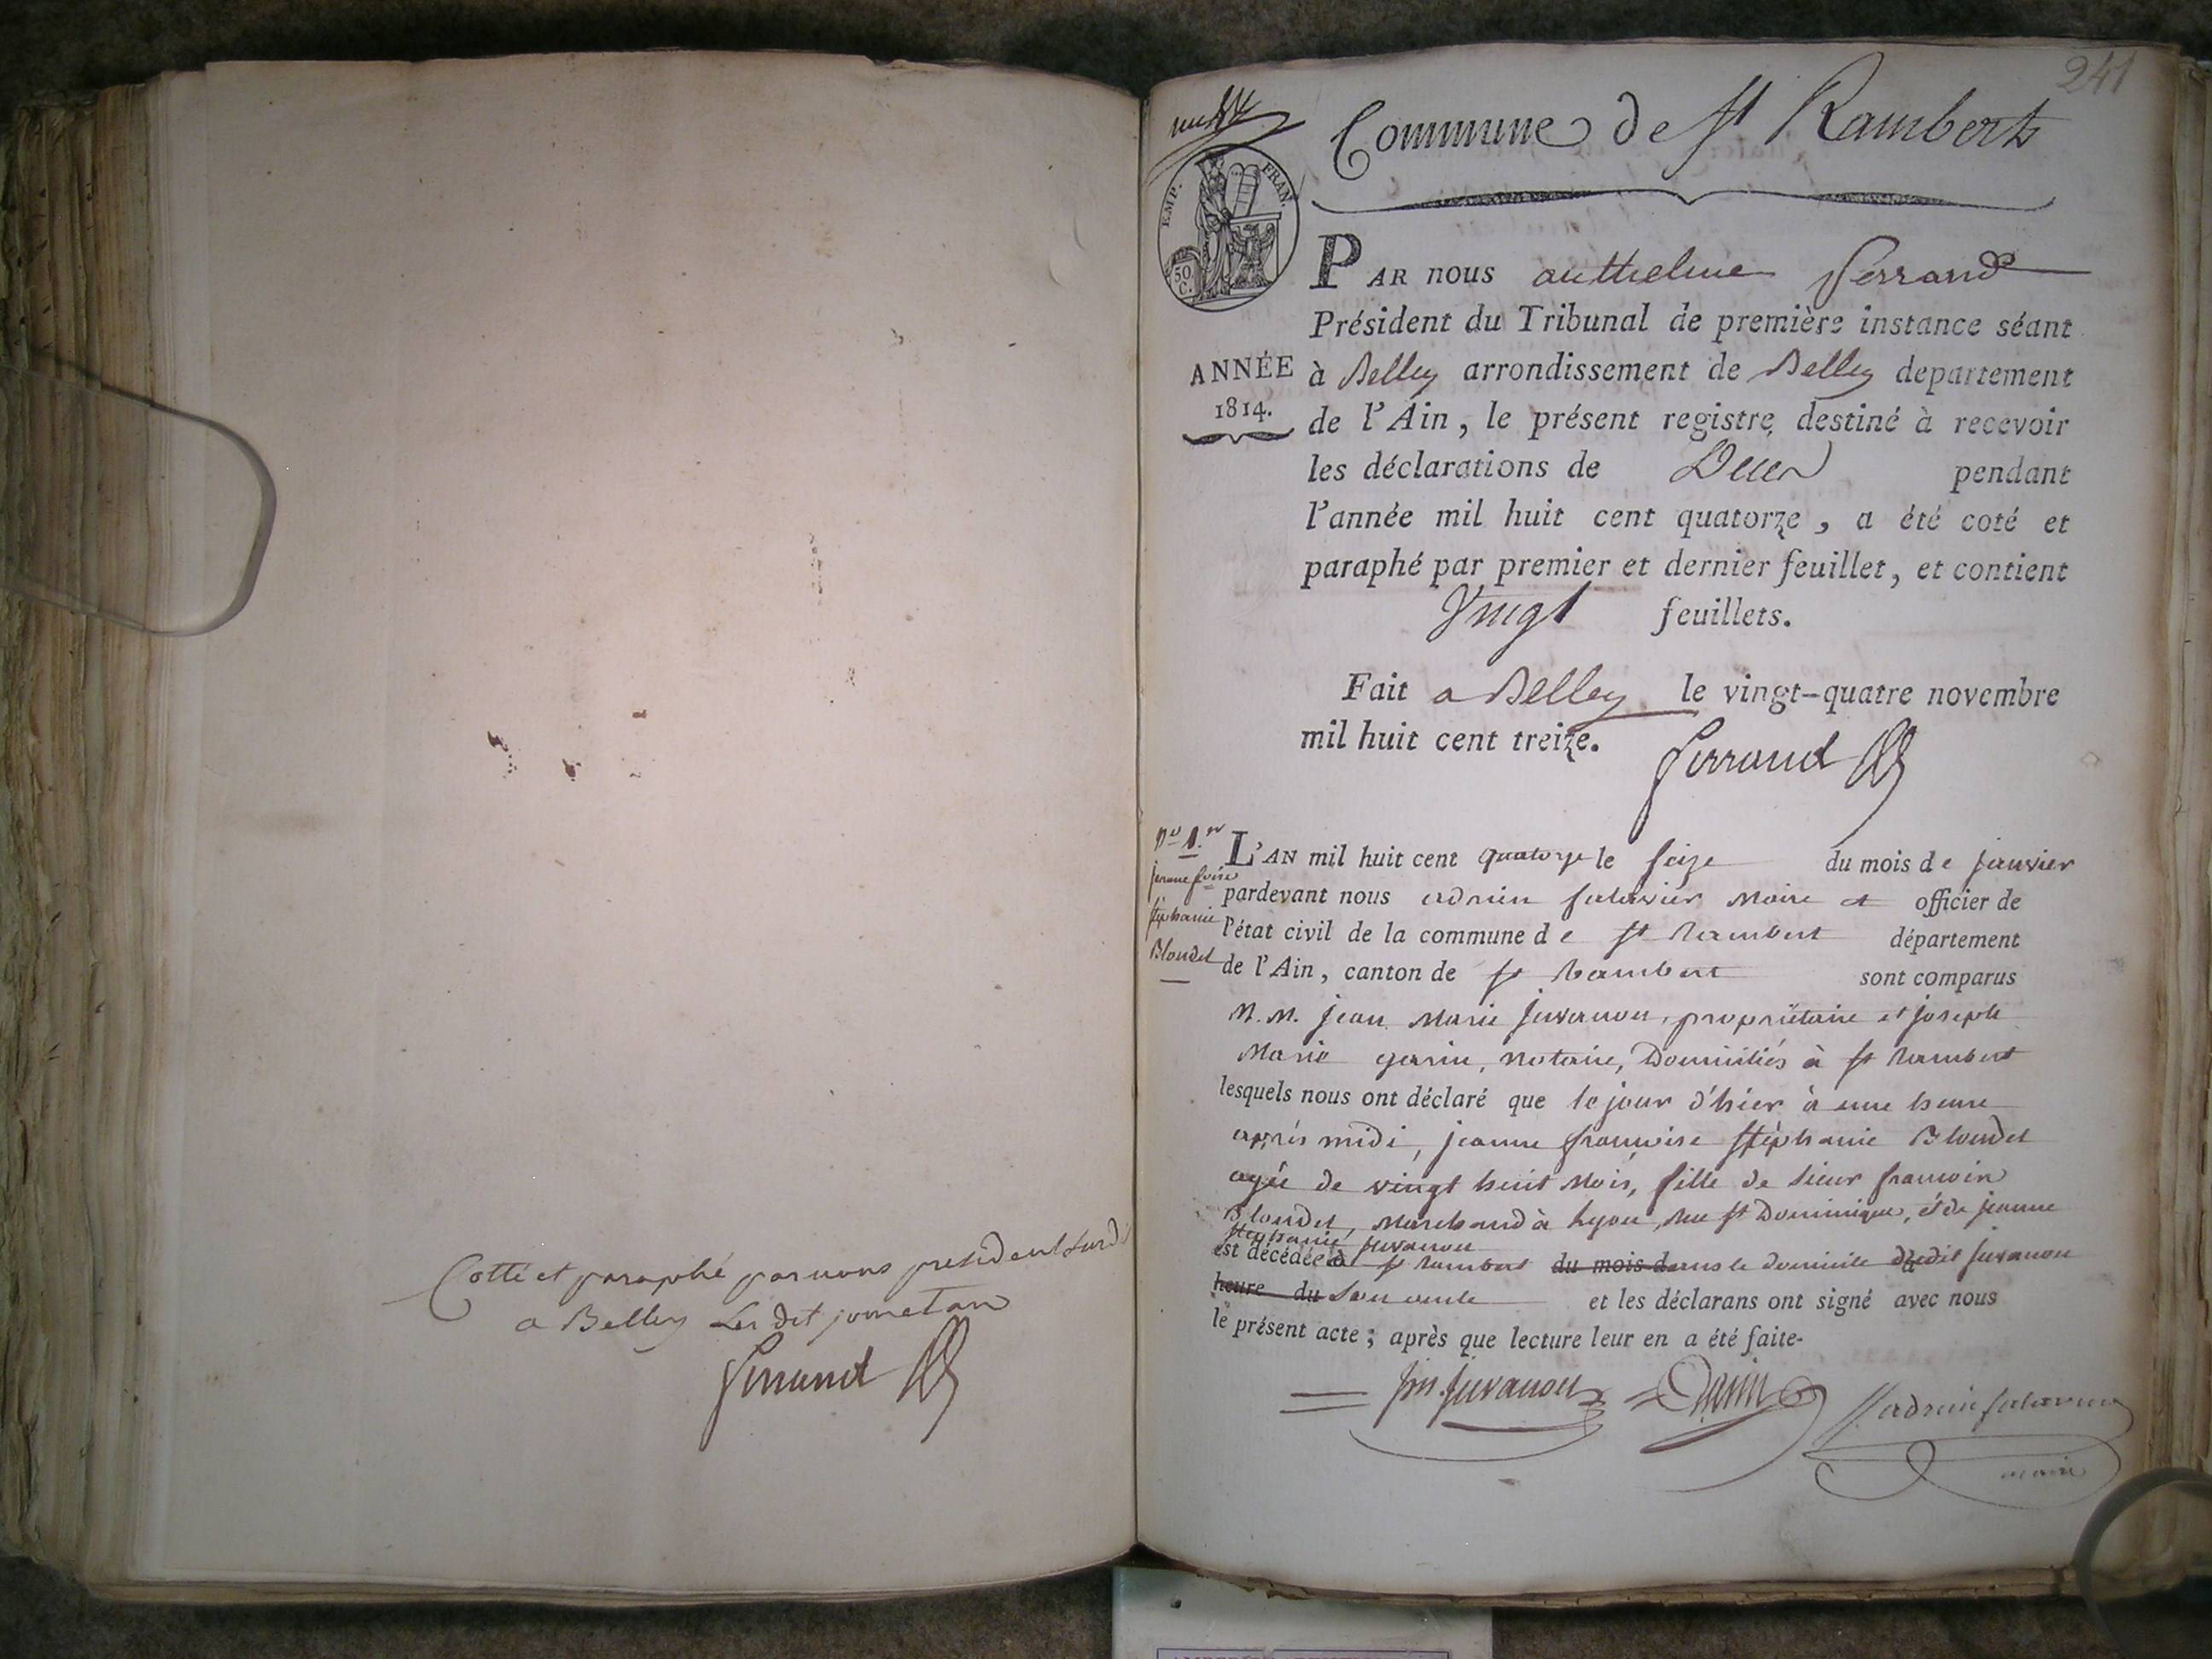 Cotté et paraphé par nous president susd
a Belley Les dit jour et an
Ferrand
241
Commune de St Rambert
EMP. FRAN.
50 C.
PAR nous anthelme ferrand
Président du Tribunal de première instance séant
ANNÉE
1814.
à Belley arrondissement de Belley departement
de l'Ain, le présent registre destiné à recevoir
les déclarations de Decès pendant
l'année mil huit cent quatorze, a été coté et
paraphé par premier et dernier feuillet, et contient
Vingt feuillets.
Fait a Belley le vingt-quatre novembre
mil huit cent treize.
ferrand
No 1.er
jeanne
stéphanie
Blondel
L'AN mil huit cent quatorze le seize du mois de janvier
pardevant nous adrien salavier Maire et officier de
l'état civil de la commune de st rambert département
de l'Ain, canton de st rambert sont comparus
M. M. jean Marie juvanon, propriétaire et joseph
Marie garin, notaire, Domiciliés à st rambert
lesquels nous ont déclaré que le jour d'hier à une heure
après midi, jeanne françoise stéphanie Blondel
agée de vingt huit Mois, fille de sieur françois
Blondel, Marchand à Lyon, rue st Dominique, et de jeanne
stephanie juvanon
est décédée à st rambert du mois dans le domicile dudit juvanon
heure du Son oncle et les déclarans ont signé avec nous
le présent acte; après que lecture leur en a été faite.
juvanon Garin adrien salavier
maire